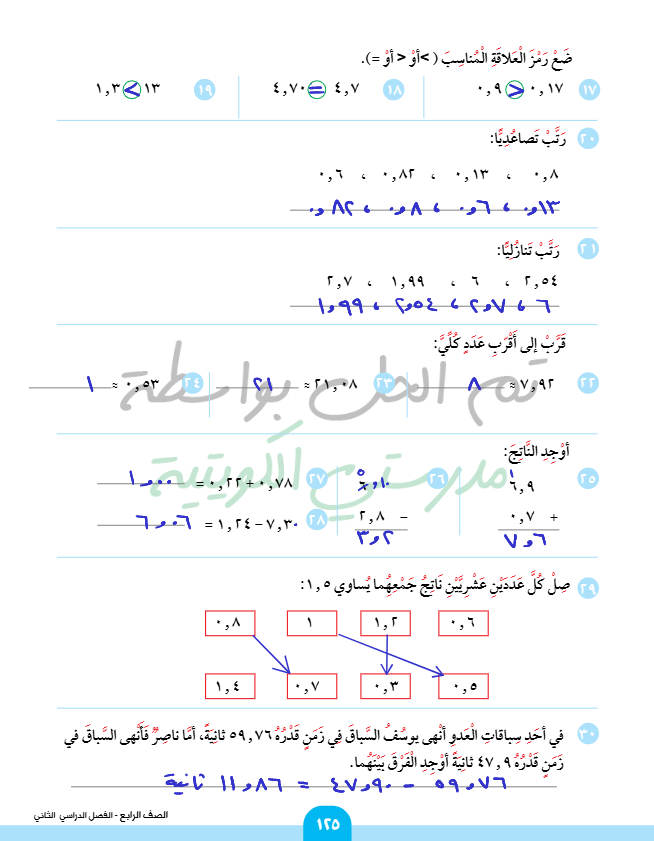 ضَعْ رَمْزَ الْعَلاقَةِ الْمُناسِبَ ( >أوْ < أوْ =).
١٧ ٠,١٧ > ٠,٩ ١٨ ٤,٧ = ٤,٧٠ ١٩ ١٣ < ١,٣
٢٠ رَتِّبْ تَصاعُدِيًّا:
٠,٨ ، ٠,١٣ ، ٠,٨٢ ، ٠,٦
٠,١٣ ، ٠,٦ ، ٠,٨ ، ٠,٨٢
٢١ رَتِّبْ تَنازُلِيًّا:
٢,٥٤ ، ٦ ، ١,٩٩ ، ٢,٧
٦ ، ٢,٧ ، ٢,٥٤ ، ١,٩٩
قَرِّبْ إلى أَقْرَبِ عَدَدٍ كُلِّيَّ:
تم الحل بواسطة
٢٢ ٧,٩٢ ≈ ٨ ٢٣ ٢١,٠٨ ≈ ٢١ ٢٤ ٠,٥٣ ≈ ١
أوْجِدِ النَّاتِجَ:
مدرستي الكويتية
٢٥ ١ ٦,٩ ٢٦ ٥ ٦,١٠ ٢٧ ٠,٧٨ + ٠,٢٢ = ١,٠٠
+ ٠,٧ − ٢,٨ ٢٨ ٧,٣٠ − ١,٢٤ = ٦,٠٦
٧,٦ ٣,٢
٢٩ صِلْ كُلَّ عَدَدَيْنِ عَشْرِيَّيْنِ نَاتِجُ جَمْعِهِما يُساوي ١,٥:
٠,٦ ١,٢ ١ ٠,٨
٠,٥ ٠,٣ ٠,٧ ١,٤
٣٠ في أحَدِ سِباقاتِ الْعَدوِ أنْهى يوسُفُ السَّباقَ فِي زَمَنٍ قَدْرُهُ ٥٩,٧٦ ثانِيَةً، أمَّا ناصِرٌ فَأَنْهى السَّباقَ في
زَمَنٍ قَدْرُهُ ٤٧,٩ ثانِيَةً أوْجِدِ الْفَرْقَ بَيْنَهُما.
٥٩,٧٦ − ٤٧,٩٠ = ١١,٨٦ ثانية
الصف الرابع - الفصل الدراسي الثاني
١٢٥